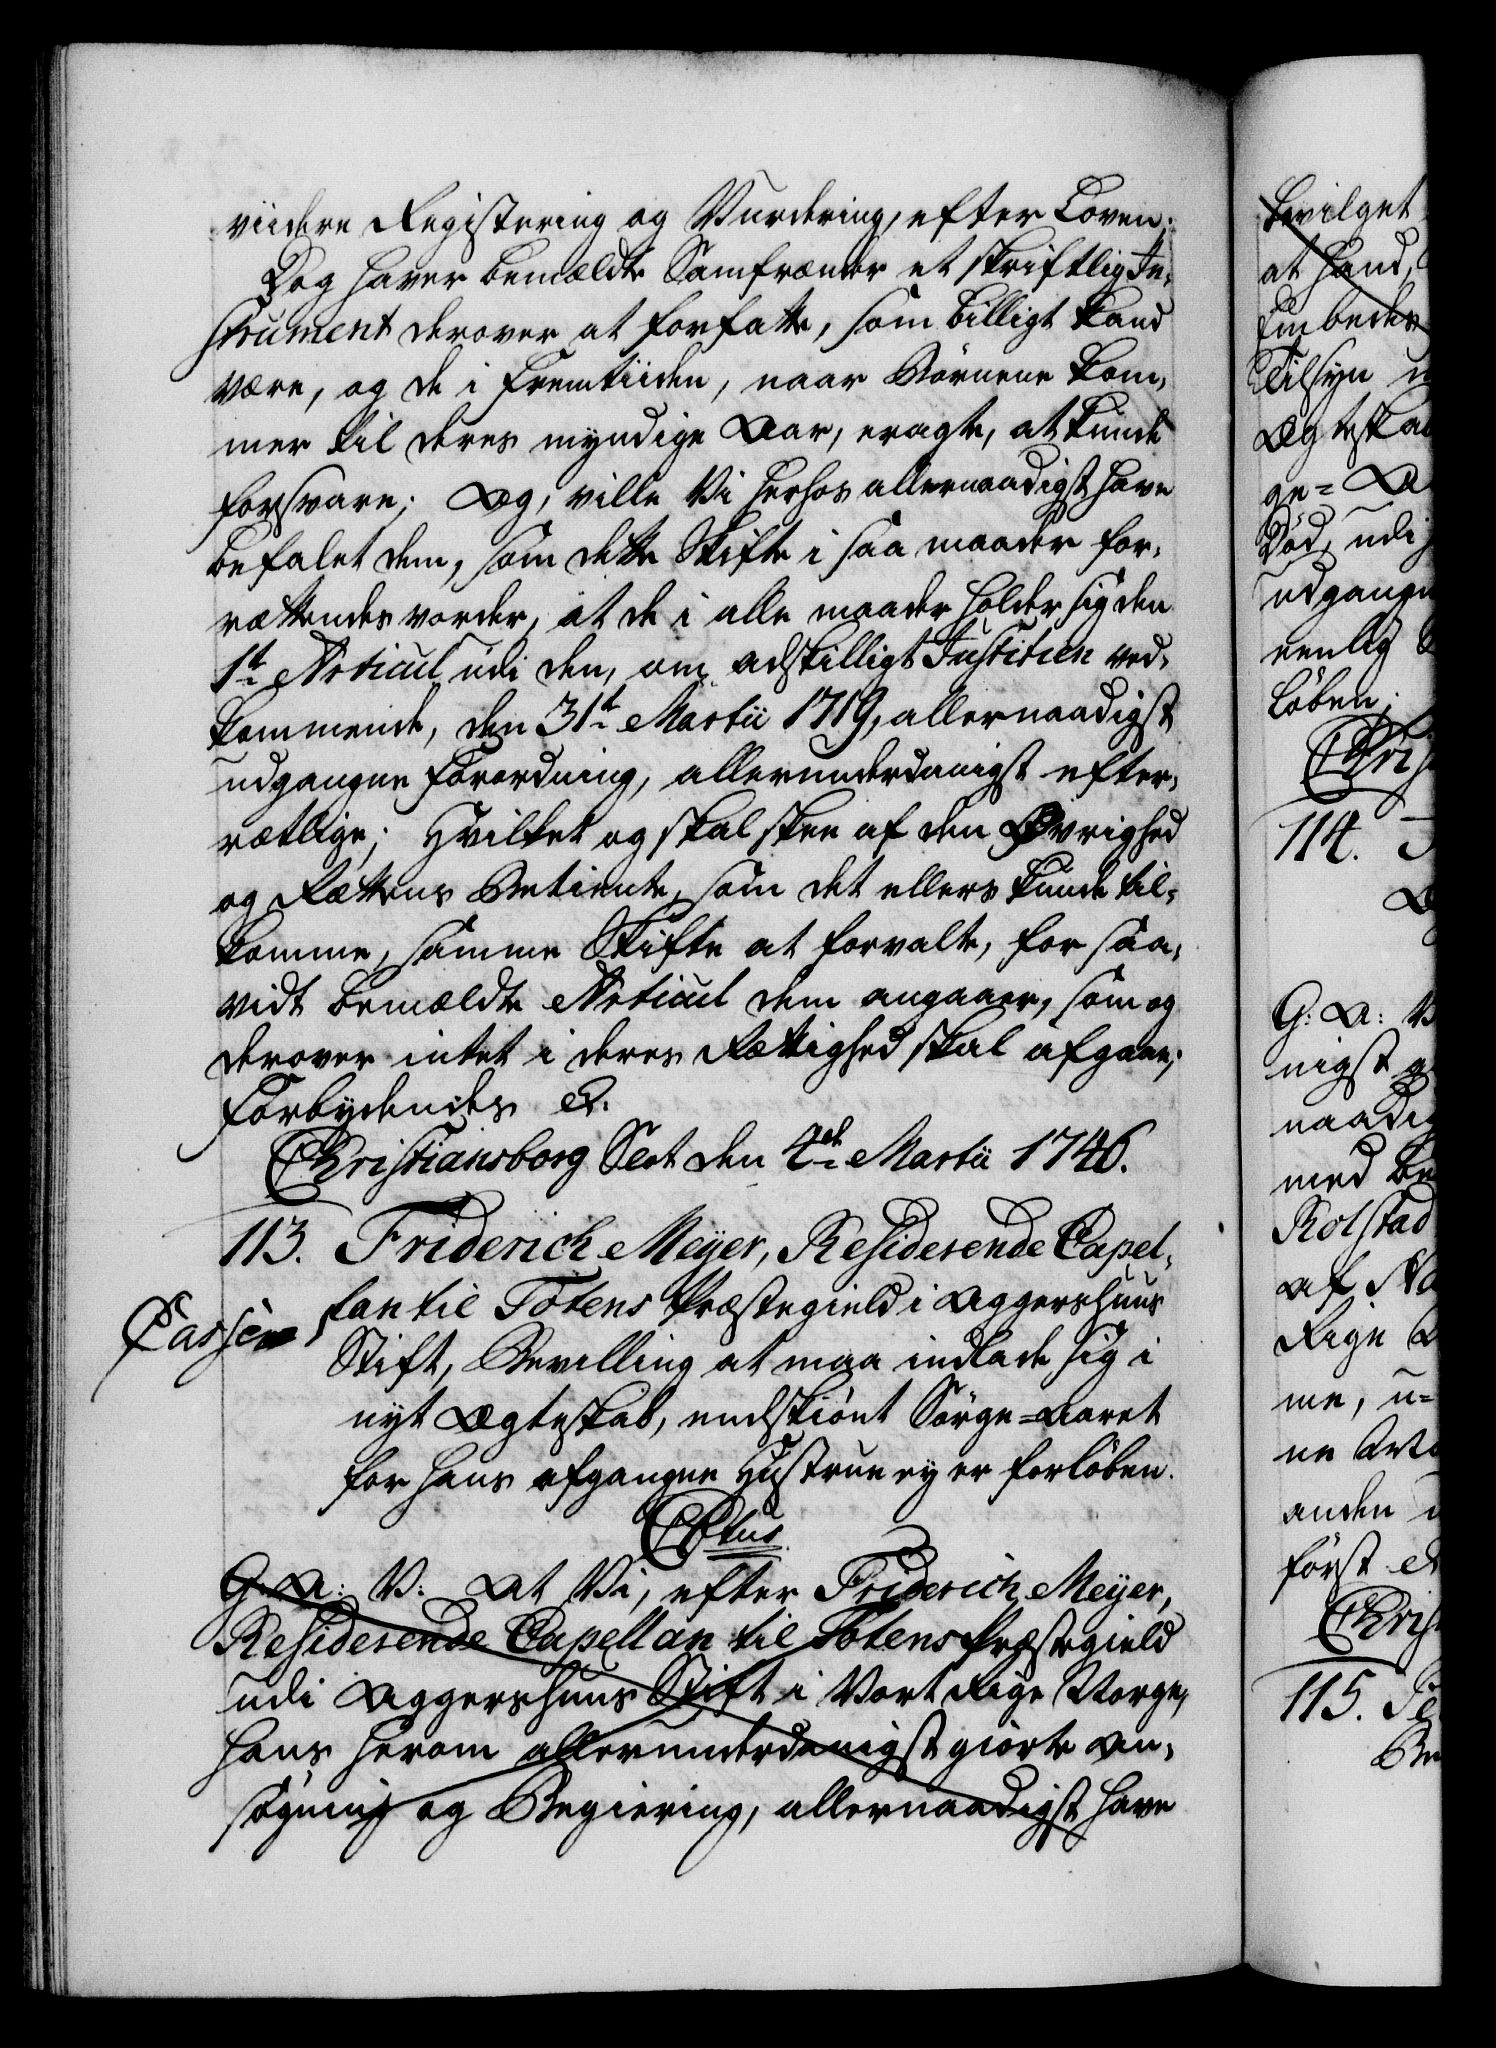 viidere Registering og Vurdering, efter Loven;
Dog haver bemældte Samfrænder et skriftlig In-
strument derover at forfatte, som billigt kand
være, og de i Fremtiiden, naar Børnene kom-
mer til deres myndige Aar, eragte, at kunde
forsvare; Og, ville Vi herhos allernaadigst have
befalet dem, som dette Skifte i saa maader for-
rettendes vorder, at de i alle maader holder sig den
1te Articul udi den, om adskilligt Justitien ved-
kommende, den 31te Martii 1719, allernaadigst
udgangne Forordning, allerunderdanigst efter-
rætlige; Hvilket og skal skee af den Øvrighed
og Rættens Betiente, som det ellers kunde til-
komme, samme Skifte at forvalte, for saa-
vidt bemældte Articul dem angaaer, som og
derover intet i deres Rættighed skal afgaae;
Forbydendes &.
Christiansborg Slot den 4de Martii 1746.
113. Friderich Meyer, Residerende Capel-
lan til Totens Præstegield i Aggershuus
Casseres
Stift, Bevilling at maa indlade sig i
nyt Ægteskab, endskiønt Sørge-Aaret
for hans afgangne Hustrue ey er forløben.
CPtus
G: A: V: At Vi, efter Friderich Meyer,
Residerende Capellan til Totens Præstegield
udi Aggershuus Stift i Vort Rige Norge,
hans herom allerunderdanigst giorte An-
søgning og Begiering, allernaadigst have
bevilget
at hand,
Embedes
Tilsyn
Ægteska
ge- A
Død, udi
udgangn
eenlig
løben;
Chris
114.
G: A: V
nigst
naadig
med be
Rolstad
af
Rige
me, u-
ne
anden
først
Christ
115.
Be